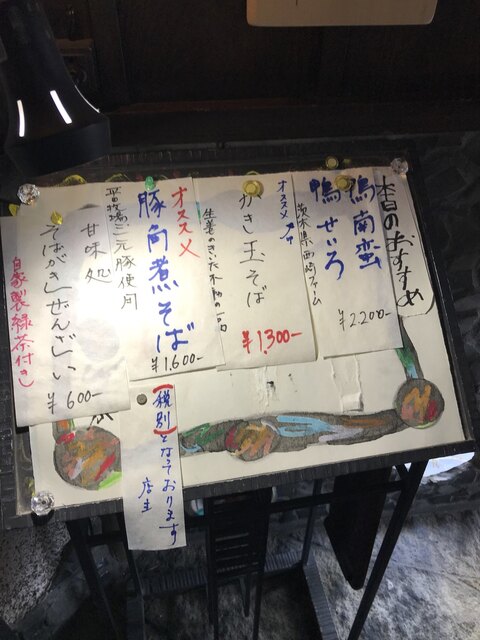 本日のおすすめ
鴨南蛮
鴨せいろ
¥2.200-
茨木県西崎ファーム
オススメ
かき玉そば
¥1,300-
生姜のきいた本物の一品
オススメ
豚角煮そば
¥1,600-
平田牧場三元豚使用
甘味処
そばがきぜんざい
¥600-
自家製緑茶付き
(税別)となっております
店主